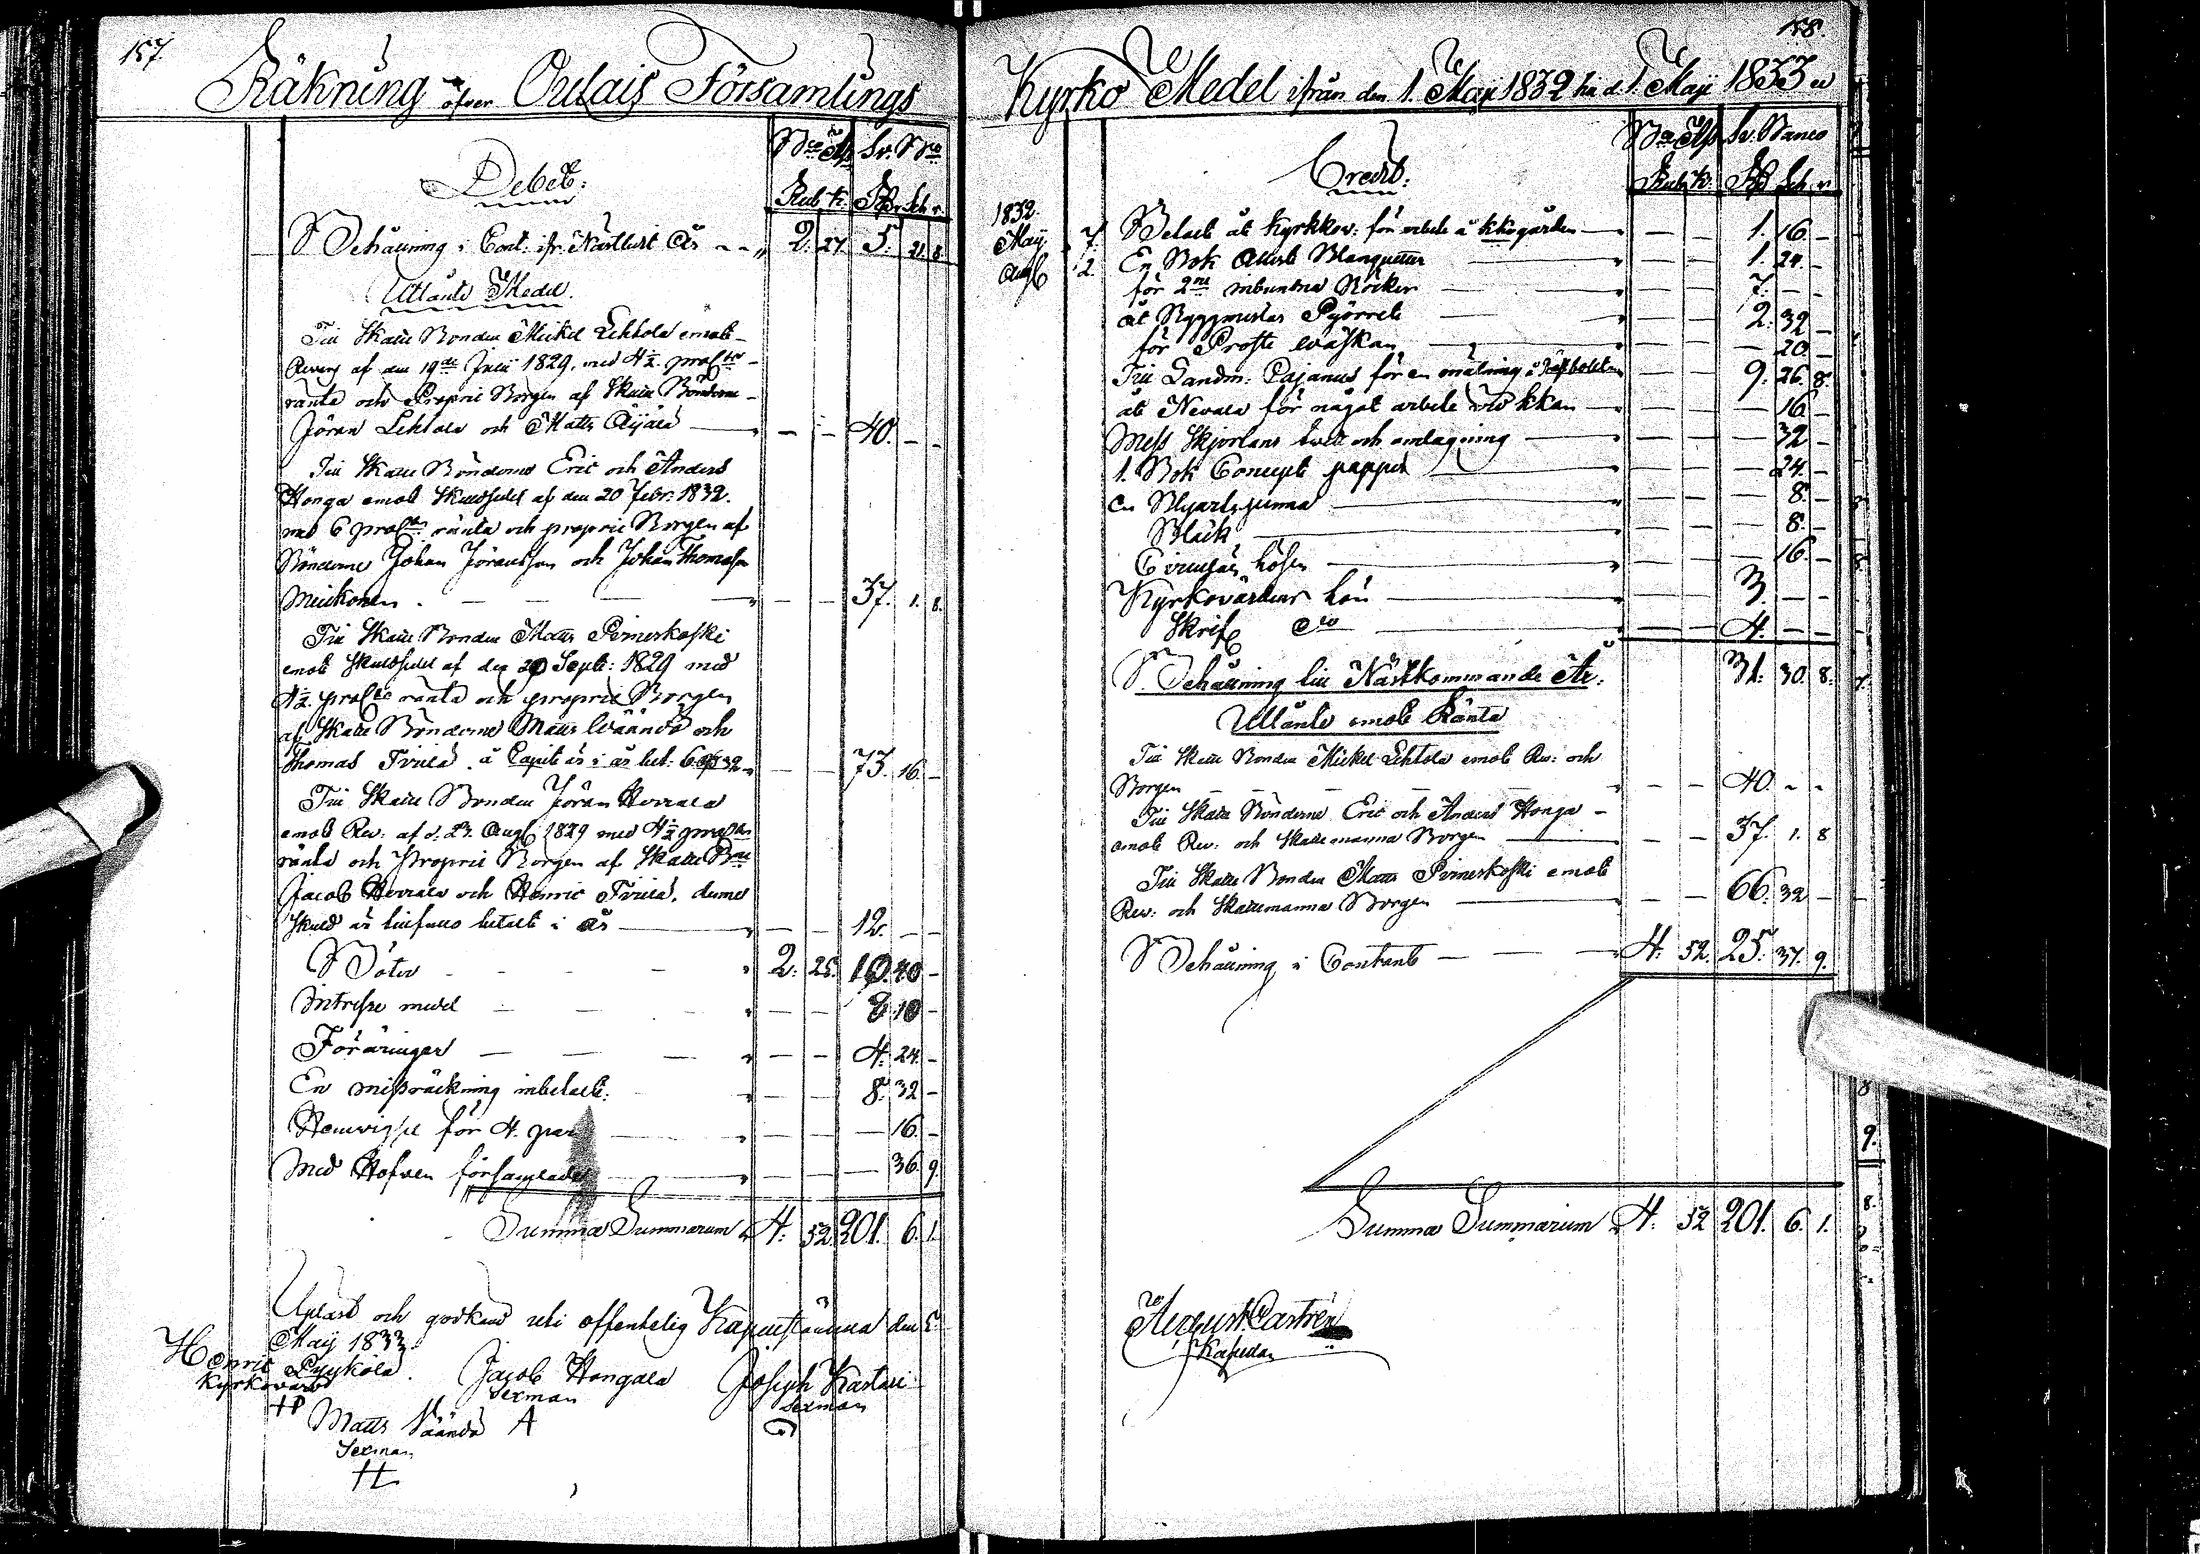 157.
Räkning öfver Oulais Församlings
Debet:
Bco Ass. Sv. Bco
Rub. k. Rdr Sch. r.
Behållning i Cont. ifr. Nästlidit År 2. 27. 5. 21. 8.
Utlånte Medel.
Till Skatte Bonden Mickel Lehtola emot
Revers af den 19de Julii 1829, med 4½ pro Cto
ränta och Proprie Borgen af Skatte Bönderne
Jöran Lehtola och Matts Äijälä — — 40. — —
Till Skatte Bönderne Eric och Anders
Honga emot Skuldsedel af den 20 Febr. 1832.
med 6 pro Cto ränta och proprie Borgen af
Bönderne Johan Jöransson och Johan Thomasson
— — 37. 1. 8.
Till Skatte Bonden Matts Pirneskoski
emot Skuldsedel af den 29 Sept: 1829 med
4½ pro Cto ränta och proprie Borgen
af Skatte Bönderne Matts Wäändö och
Thomas å Capit. är i år bet. 6 32 — — 73. 16. —
Till Skatte Bonden Jöran Herrala
emot Rev: af d. 23. Aug. 1829 med 4½ pro Cto
ränta och Proprie Borgen af Skatte Bne
Jacob Herrala och Henric denna
Skuld är tillfullo betalt i år — — 12. — —
Böter 2. 25. 10. 40 —
Intresse medel — — 8. 10 —
Föräringar — — 4. 24. —
En missräckning inbetalt. — — 8. 32 —
Hemvigsel för 4. par — — — 16. —
Med Hofven församlade — — — 36. 9.
Summa Summarum 4. 52. 201. 6. 1.
Uplast och godkänd uti offentelig den 5
Maij 1833.
Henric Pyykölä. Jacob Hongala Joseph Kastari
Kyrkovärd Sexman Sexman
HP
Matts Wäändö A
Sexman
H
158.
Kyrko Medel ifrån den 1. Maij 1832 till d. 1. Maij 1833
Credit:
Bco Ass. Sv. Banco
Rub. k. Rdr Sch. r.
1832.
Maij 7. Betalt åt Kyrkkov: för arbete å kkogården — — 1. 16. —
Aug. 2. En Bok Attest Blanquetter — — 1. 24. —
för 2ne inbundna Böcker — — 7. — —
åt Byggmästar Pyörret — — 2. 32 —
för Proste — — — 20. —
Till Landm. Cajanus för en mätning å — — 9. 26. 8.
åt Nevala för något arbete vid kkan — — — 16. —
Mess Skjortans tvätt och omlagning — — — 32 —
1. Bok Concept papper — — — 24. —
En Blyarts penna — — — 8. —
Bläck — — — 8. —
— — — 16. —
Kyrkovärdens lön — — 3. — —
Skrif Do — — 4. — —
31. 30. 8.
Behållning till Nästkommande År.
Utlånte emot Ränta
Till Skatte Bonden Mickel Lehtola emot Rev: och
Borgen — — 40. — —
Till Skatte Bönderne Eric och Anders Honga
emot Rev: och Skattemanna Borgen — — 37. 1. 8
Till Skatte Bonden Matts Pirneskoski emot
Rev: och Skattemanna Borgen — — 66. 32 —
Behållning i Contant 4. 52. 25. 37. 9.
Summa Summarum 4. 52 201. 6. 1.
August Castrén
Kapellan